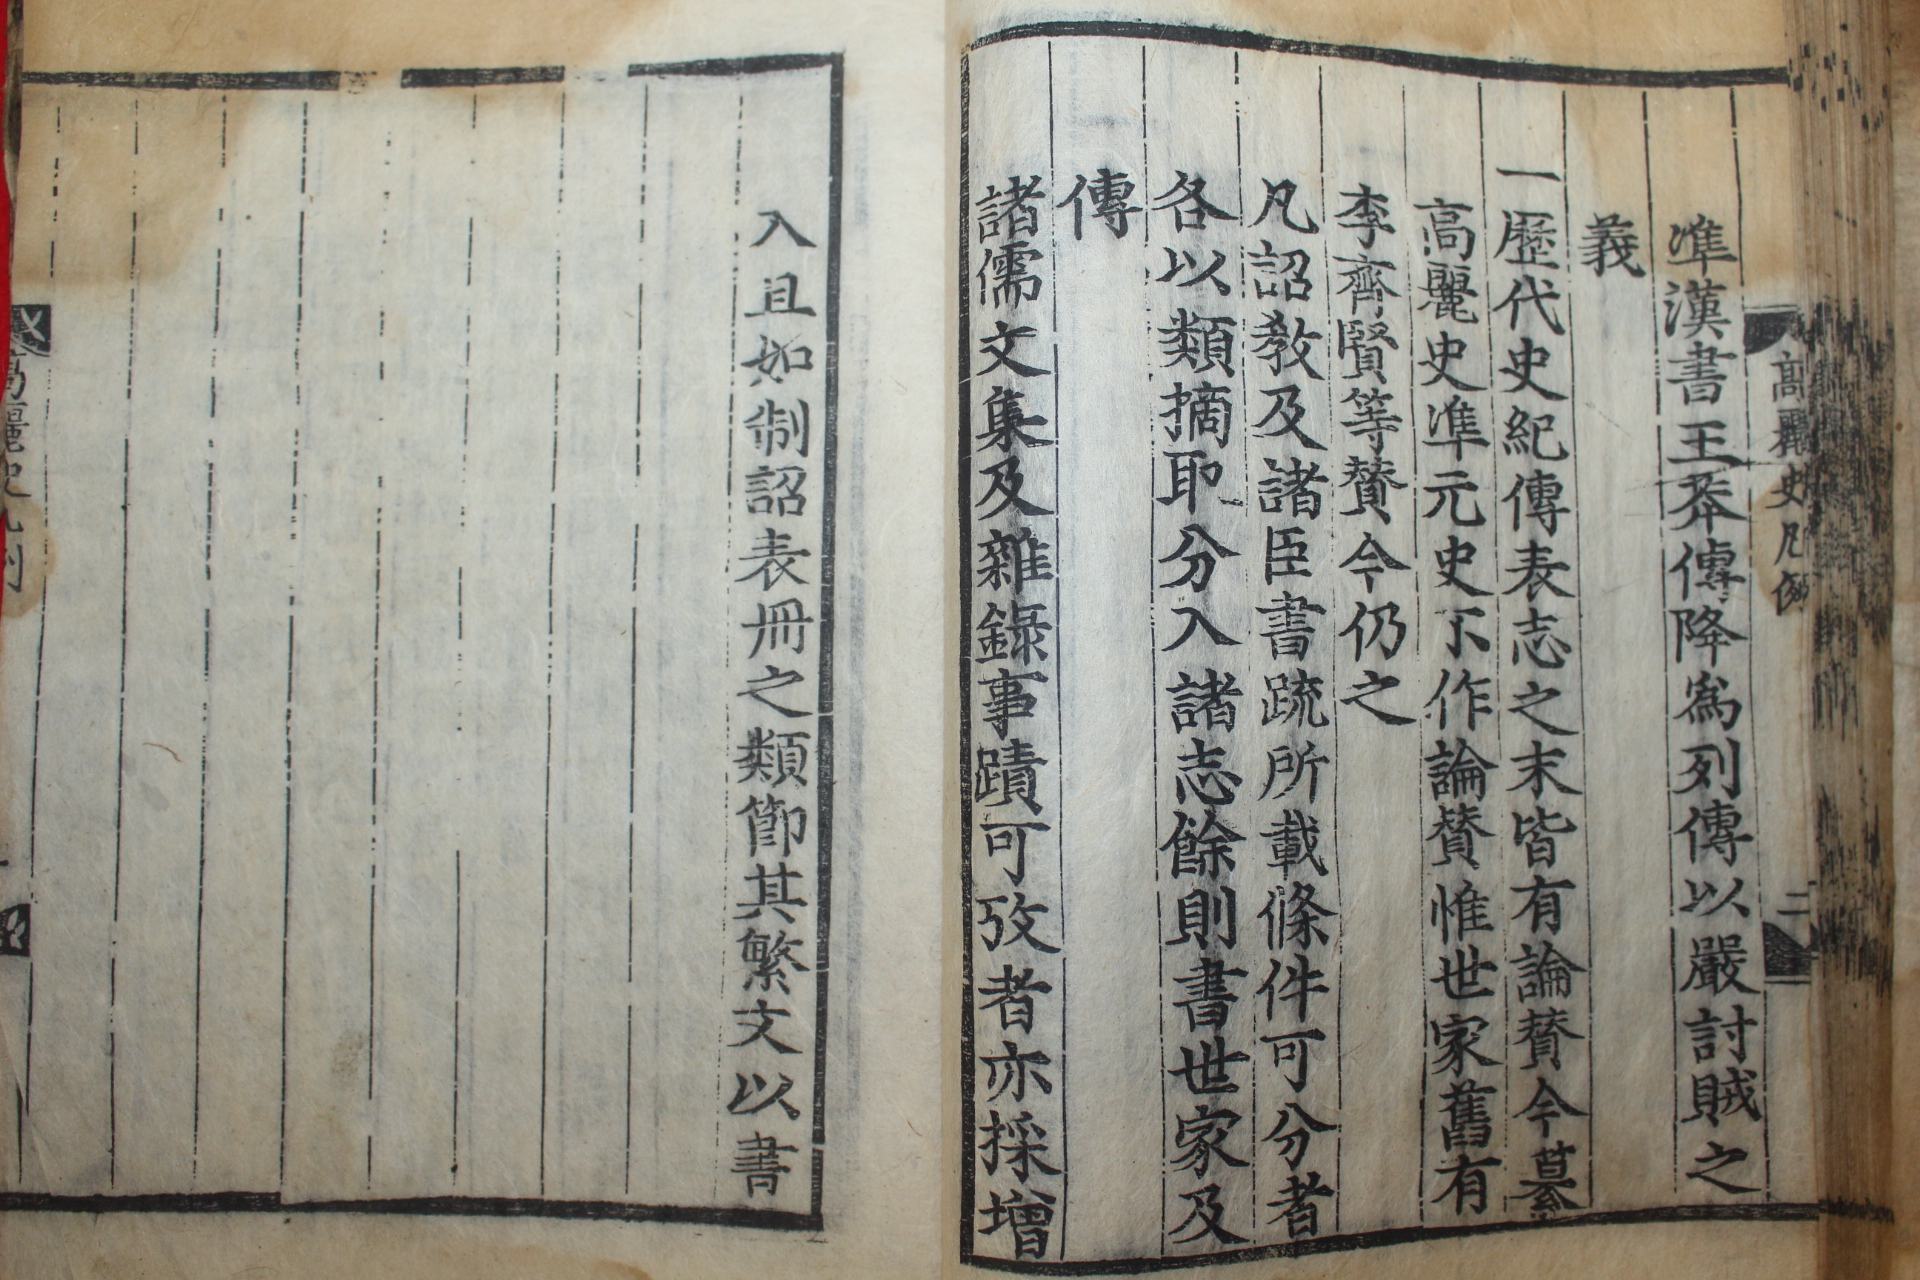 高麗史凡例
二
準漢書王莽傳降爲列傳以嚴討賊之
義
一歷代史紀傳表志之末皆有論贊今纂
高麗史準元史不作論贊惟世家舊有
李齊賢等贊今仍之
凡詔敎及諸臣書疏所載條件可分者
各以類摘取分入諸志餘則書世家及
傳
諸儒文集及雜錄事蹟可攷者亦採增
入且如制詔表冊之類節其繁文以書
高麗史凡例